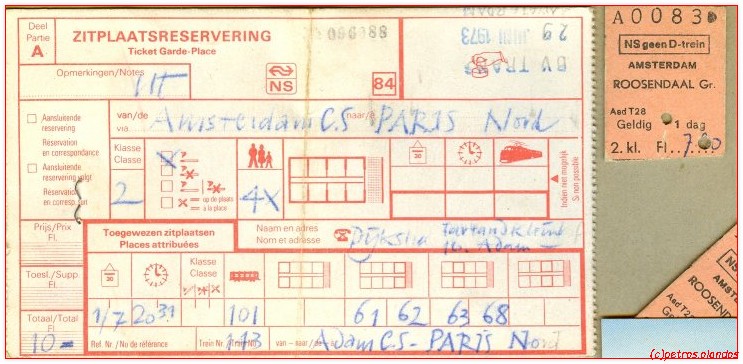 Deel
Partie
A
ZITPLAATSRESERVERING
Ticket Garde-Place
090088
29 JUN 1973
BV TRANS
Opmerkingen/Notes
NS
84
van/de
via
Amsterdam C.S
naar/à
PARIS Nord
Aansluitende
reservering
Réservation
en correspondance
Aansluitende
reservering volgt
Réservation
en corresp. suit
Klasse
Classe
2
op de plaats
à la place
4X
30
Indien niet mogelijk
Si non possible
Prijs/Prix
Fl.
Toegewezen zitplaatsen
Places attribuées
Naam en adres
Nom et adresse
Dijkstra
16. Adam
Toesl./Supp
Fl.
30
Klasse
Classe
Totaal/Total
Fl.
10=
1/7 20 31 101 61 62 63 68
Ref. Nr./No de référence
Trein Nr./Train No
113
van – naar / de – à
Adam C.S - PARIS Nord
A 0083
NS geen D-trein
AMSTERDAM
ROOSENDAAL Gr.
Asd T28
Geldig 1 dag
2. kl. Fl..7.00
NS
AMST
ROOSEND
Asd T28
Geldig
(c)petros.olandos